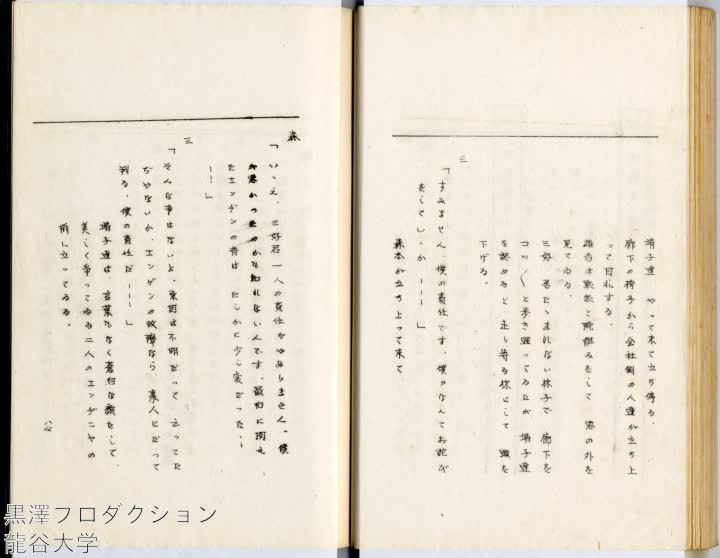 靖子達 やって来て立ち停る。
廊下の椅子から会社側の人達が立ち上
って目礼する。
雄吉は鉄敷と腕組みをして 窓の外を
見てゐる。
三好 居たゝまれない様子で 廊下を
コツ〳〵と歩き廻ってゐたが 靖子達
を認めると 走り寄る様にして 頭を
下げる。
三
「すみません、僕の責任です、僕、なんてお詫び
をしていゝか ーーー」
森本が立ち上って来て
森
「いゝえ、三好君一人の責任ぢやありません、僕
が悪かったのかも知れないんです、最初に聞え
たエンヂンの音は たしかに少し変だった、ー
ーー」
三
「そんな事はないよ、原因は不明だって 云ってた
ぢやないか、エンヂンの故障なら、素人にだって
判る、僕の責任だ ーーー」
靖子達は、言葉もなく蒼白な顔をして、
美しく争ってゐる二人のエンヂニヤの
前に立ってゐる。
黒澤プロダクション
龍谷大学